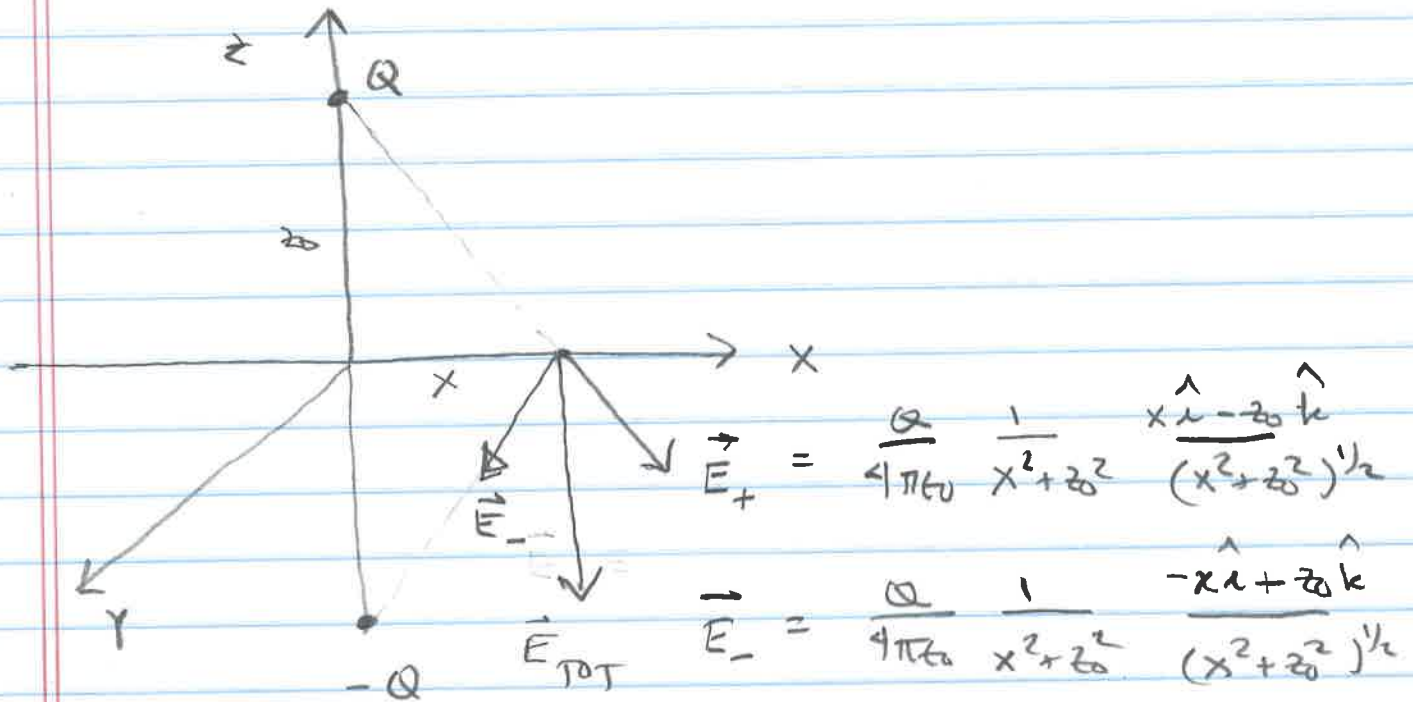 z
Q
z₀
x
X
Y
-Q
E⃗₋
E⃗_TOT
E⃗₊ = Q/4πε₀ 1/x²+z₀² xî-z₀k̂/(x²+z₀²)^1/2
E⃗₋ = Q/4πε₀ 1/x²+z₀² -xî+z₀k̂/(x²+z₀²)^1/2